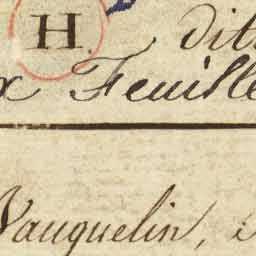 H. dit
x Feuille
Vauquelin,